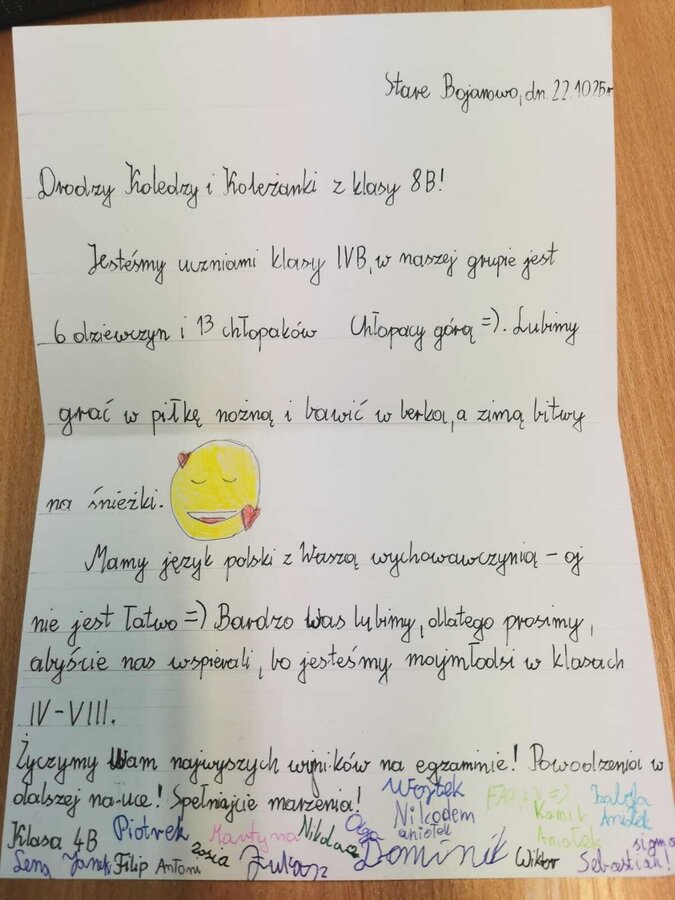 Stare Bojanowo, dn. 22.1025r
Drodzy Koledzy i Koleżanki z klasy 8B!
Jesteśmy uczniami klasy IVB, w naszej grupie jest
6 dziewczyn i 13 chłopaków Chłopacy górą =). Lubimy
grać w piłkę nożną i bawić w berka, a zimą bitwy
na śnieżki.
Mamy język polski z Waszą wychowawczynią – oj
nie jest łatwo =) Bardzo Was lubimy, dlatego prosimy,
abyście nas wspierali, bo jesteśmy najmłodsi w klasach
IV-VIII.
Życzymy Wam najwyszych wyników na egzaminie! Powodzenia w
dalszej na-uce! Spełniajcie marzenia!
Wojtek FABIAN =) Izabela
Nikodem Kamil Aniołek
aniołek Aniołek
Klasa 4B Piotrek Martyna Nikola Olga sigma
Lena Janek Filip Antoni zosia Łukasz Dominik Wiktor Sebastian!